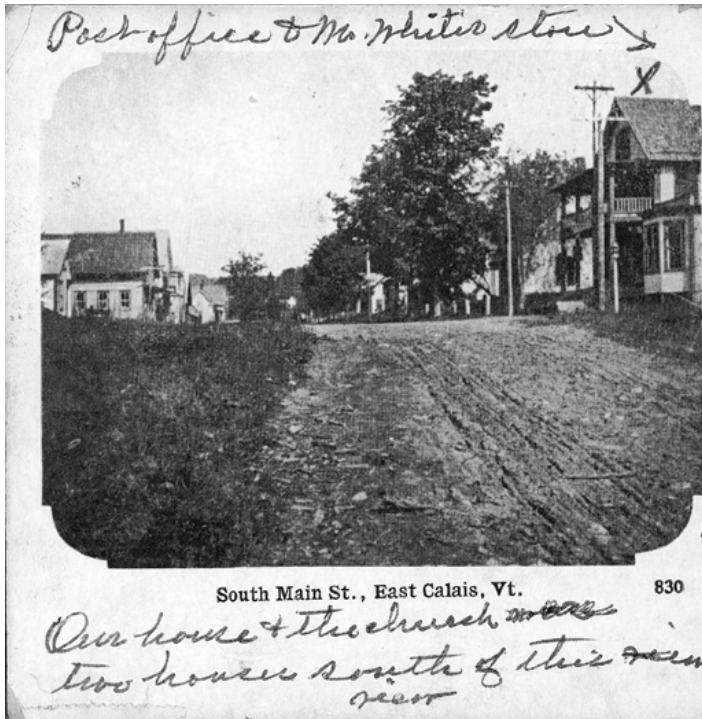 Post office & Mr. Whites store
X
South Main St., East Calais, Vt.
830
Our house & the church
two houses south of this
view